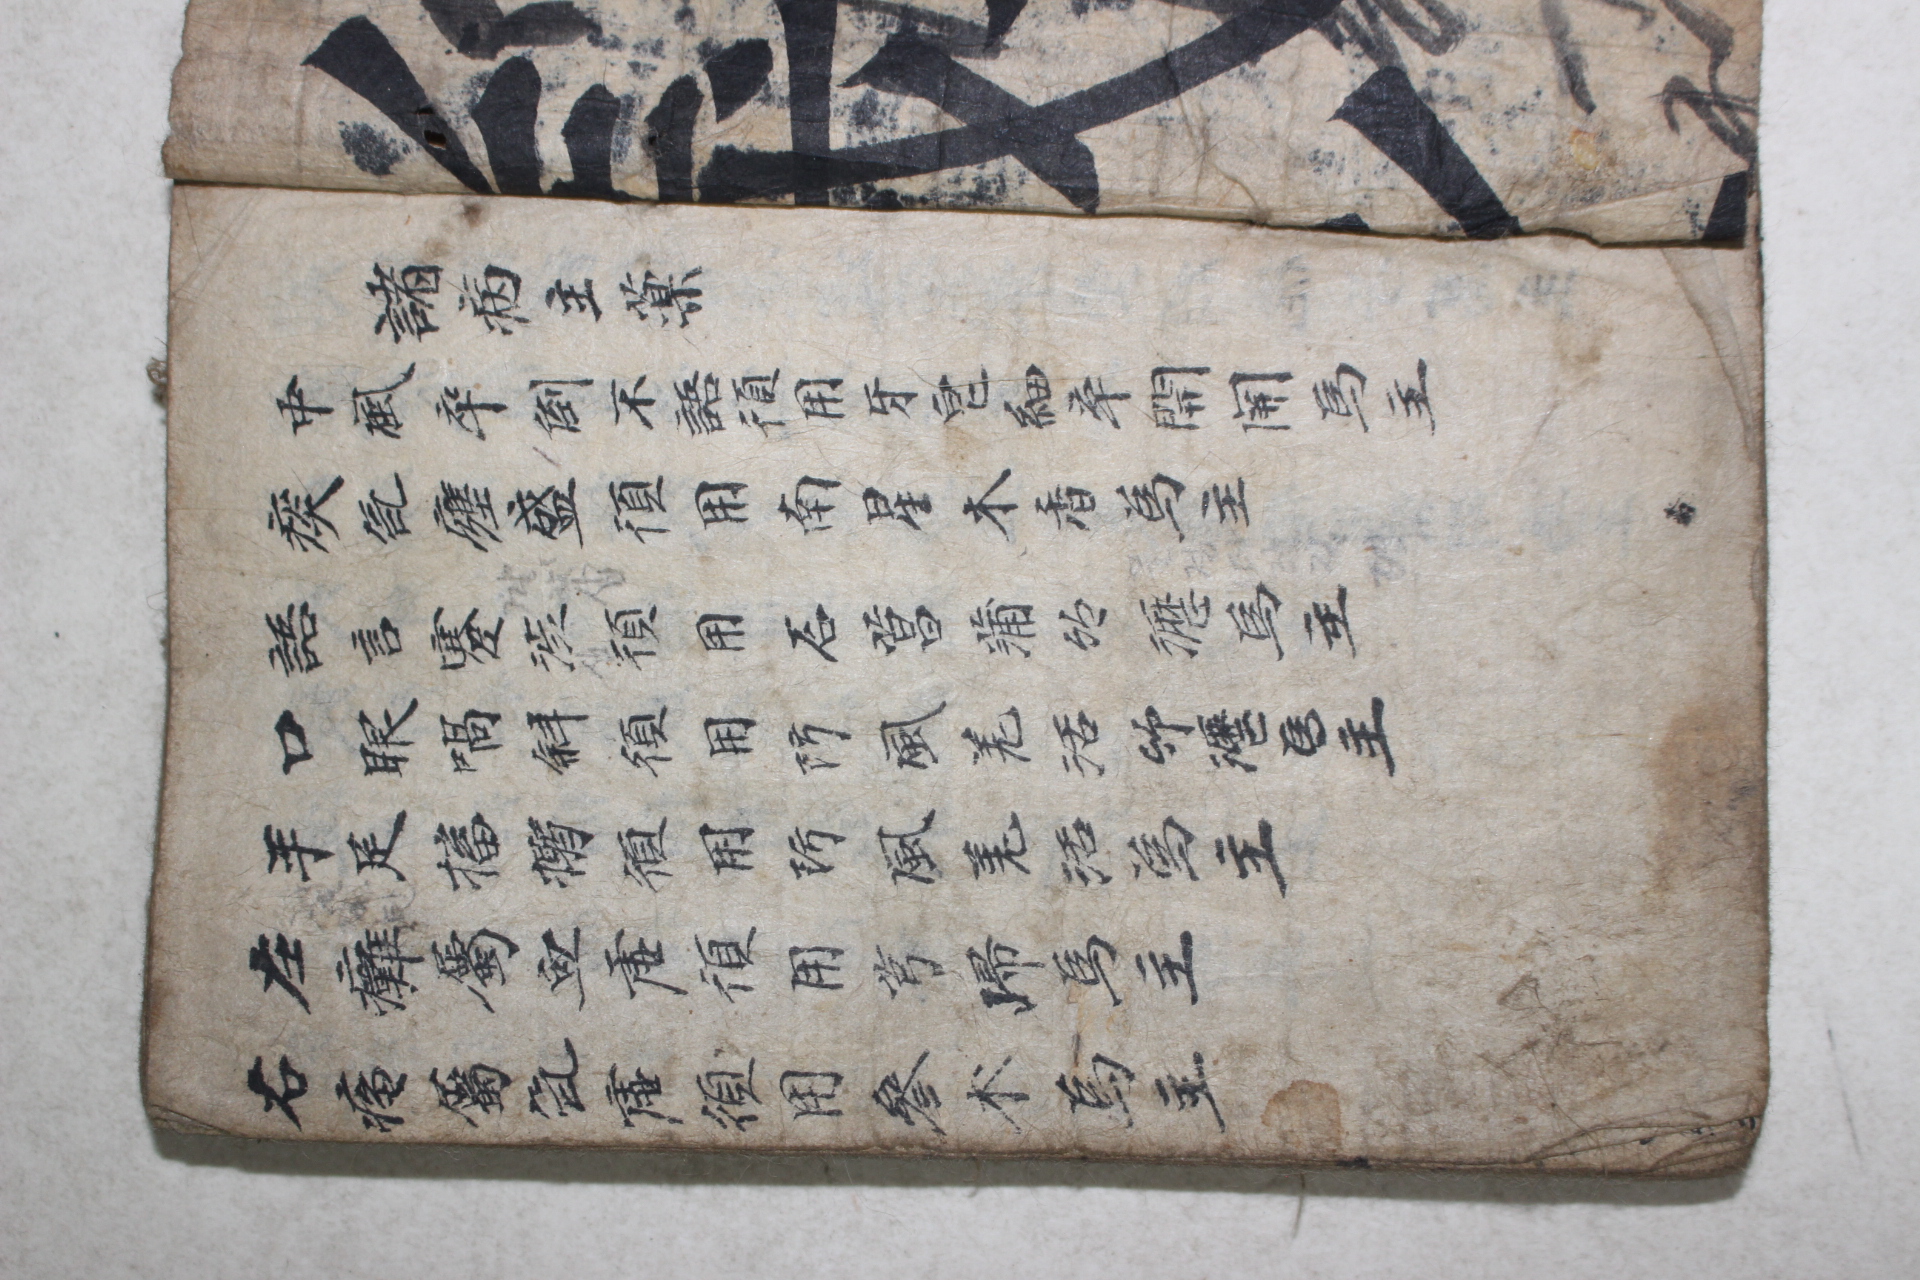 諸病主藥
中風卒倒不語須用牙皂細辛開関為主
痰氣壅盛須用南星木香為主
語言蹇澁須用石菖蒲竹瀝為主
口眼喎斜須用防風羌活竹瀝為主
手足搐搦須用防風羌活為主
左癱屬血虛須用芎歸為主
右瘓屬氣虛須用參朮為主